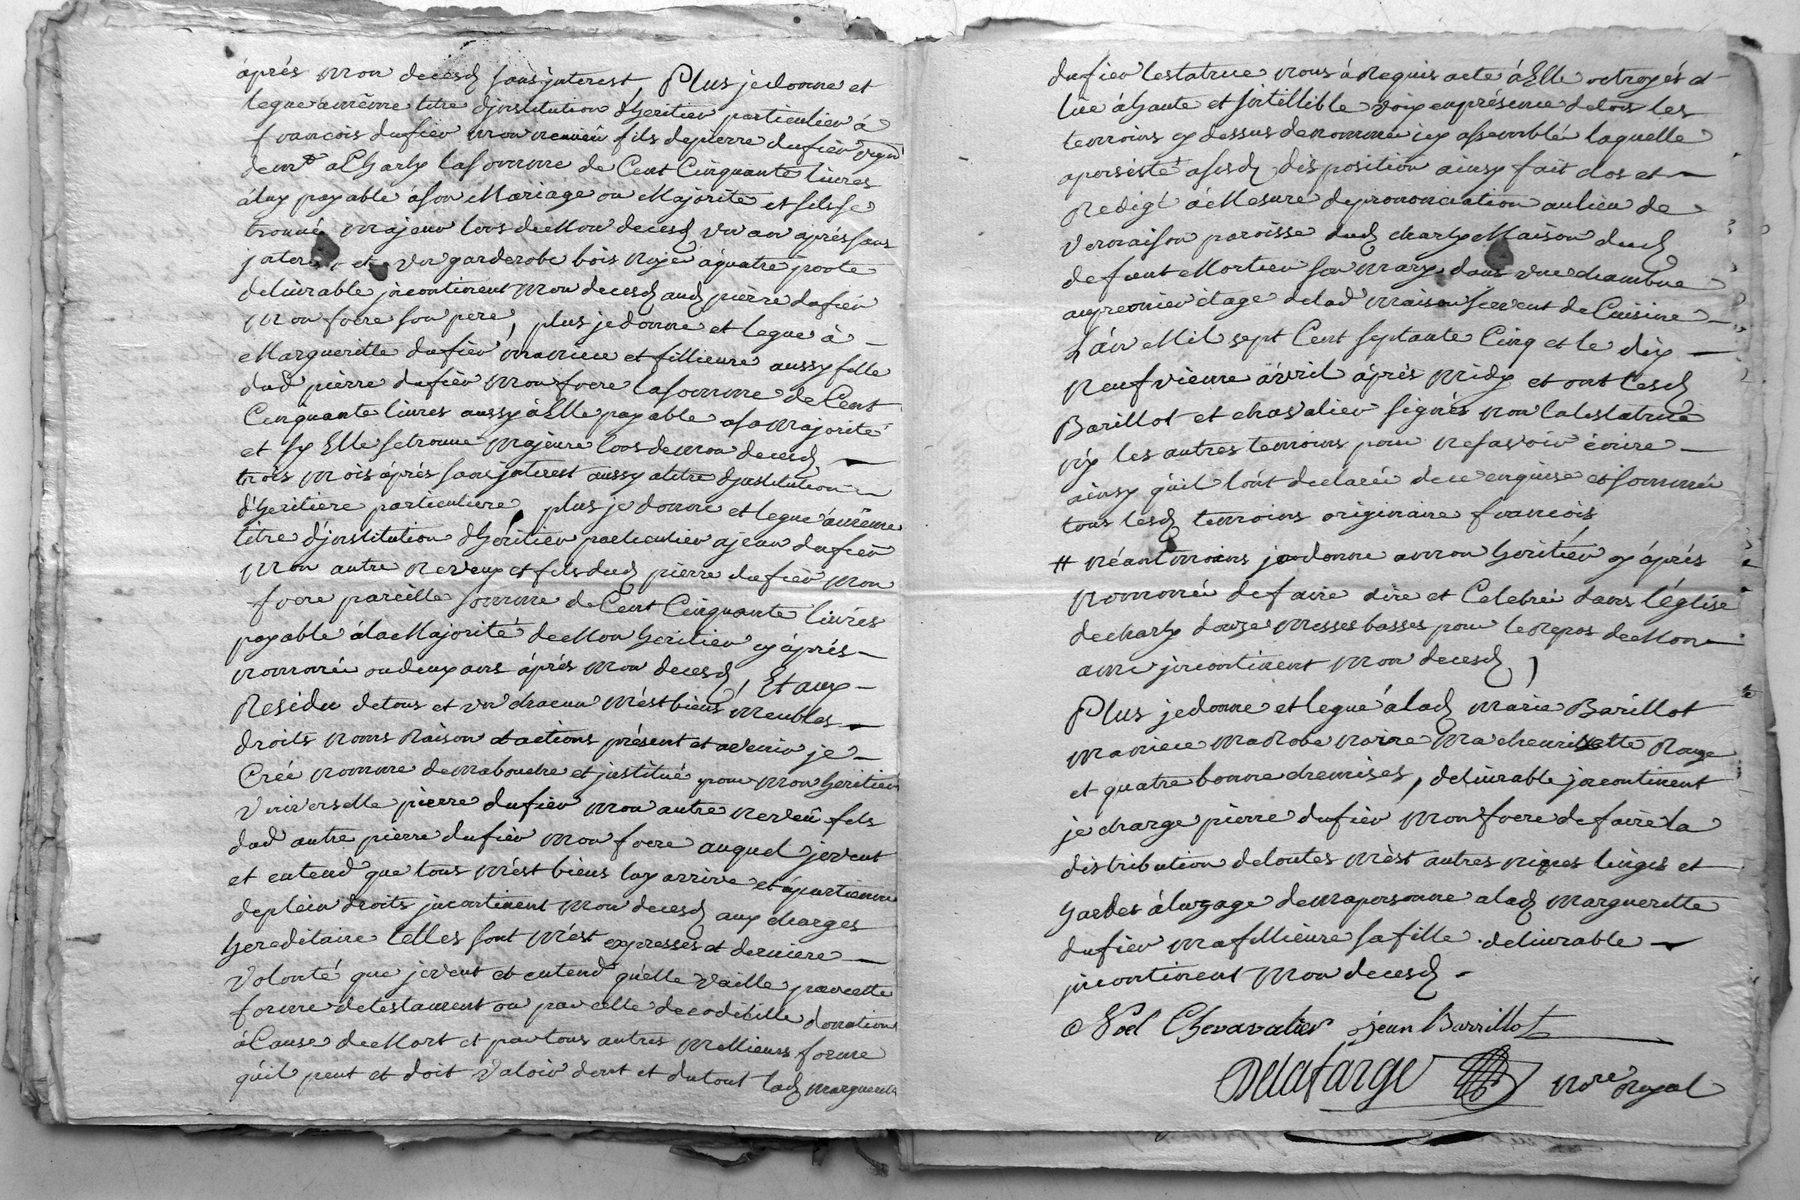 áprés mon decesd sans jnterest, Plus je donne et
legue aumême titre djnstitution dheritier particulier à
francois dufiev mon neuveu fils de pierre dufiev vign
de md a Charly la somme de Cent Cinquante livres
áluy payable áson Mariage ou Majorité et sil se
trouve majeur lors de Mon decesd vn an áprés sans
jnterest, et vn garderobe bois noyé áquatre porte
delivrable jncontinent mon decesd aud pierre dufiev
mon frere son pere, plus je donne et legue à
Marguerite dufiev maniece et fillieure aussy fille
dud pierre dufiev mon frere la somme de Cent
Cinquante livres aussy áElle payable asa majorité
et sy Elle se trouve majeure lors de mon decesd
trois mois áprés sans jnterest aussy atitre djnstitution
d'heritiere particuliere, plus je donne et legue áumême
titre djnstitution dheritier particulier a jean dufiev
mon autre neveux et fils dud pierre dufiev mon
frere pareille somme de Cent Cinquante livres
payable álaMajorité de Mon heritier cy áprés
nommé ou deux ans áprés mon decesd, Et aux
Residu de tous et vn chacun mést biens meubles
droits noms Raison et actions présent et avenir je
Créé nomme de ma bouche et jnstitué pour mon heritier
Vniverselle pierre dufiev mon autre neveu fils
dud autre pierre dufiev mon frere auquel je veut
et entend que tous mést biens luy arrive et ápartienne
de plein droits jncontinent mon decesd aux charges
hereditaire telles sont mést expresses et derniere
Volonté que je veut et entend quelle vaille par cette
forme de testament ou par celle de codicille donation
áCause de Mort et par tous autres mellieurs forme
quil peut et doit valoir dont et du tout lad marguerite
dufiev testatrice nous á Requis acte áElle octroyés et
lue áhaute et jntellible voix en présence de tous les
temoins cy dessus denommé icy assemblé laquelle
apersisté asesd disposition ainsy fait clos et
Redigé áMesure de prononciation au lieu de
Vernaison paroisse dud charly Maison dud
defunt Mortier son mary, dans vne chambre
au premier étage de lad maison servent de Cuisine
L'án Mil sept Cent septante Cinq et le dix
neufviéme ávril áprés midy et ont lesd
Barillot et chavalier signés non la testatrice
ny les autres temoins pour ne savoir écrire
ainsy quil l'ont declaré de ce enquise et sommé
tous lesd temoins originaire francois
# néantmoins je donne a mon heritier cy áprés
nommé de faire dire et Celebré dans l'église
de charly douze messes basses pour le Repos de Mon
ame jncontinent mon decesd,
Plus je donne et legue álad marie Barillot
maniece ma Robe noire ma chemisette Rouge
et quatre bonne chemises, delivrable jncontinent
je charge pierre dufiev mon frere de faire la
distribution de toutes mést autres nipes linges et
hardes áluzage de ma personne alad marguerite
dufiev ma fillieure sa fille delivrable
jncontinent mon decesd.
Noel Chevavalier jean Barrillot
Delafarge nore Royal